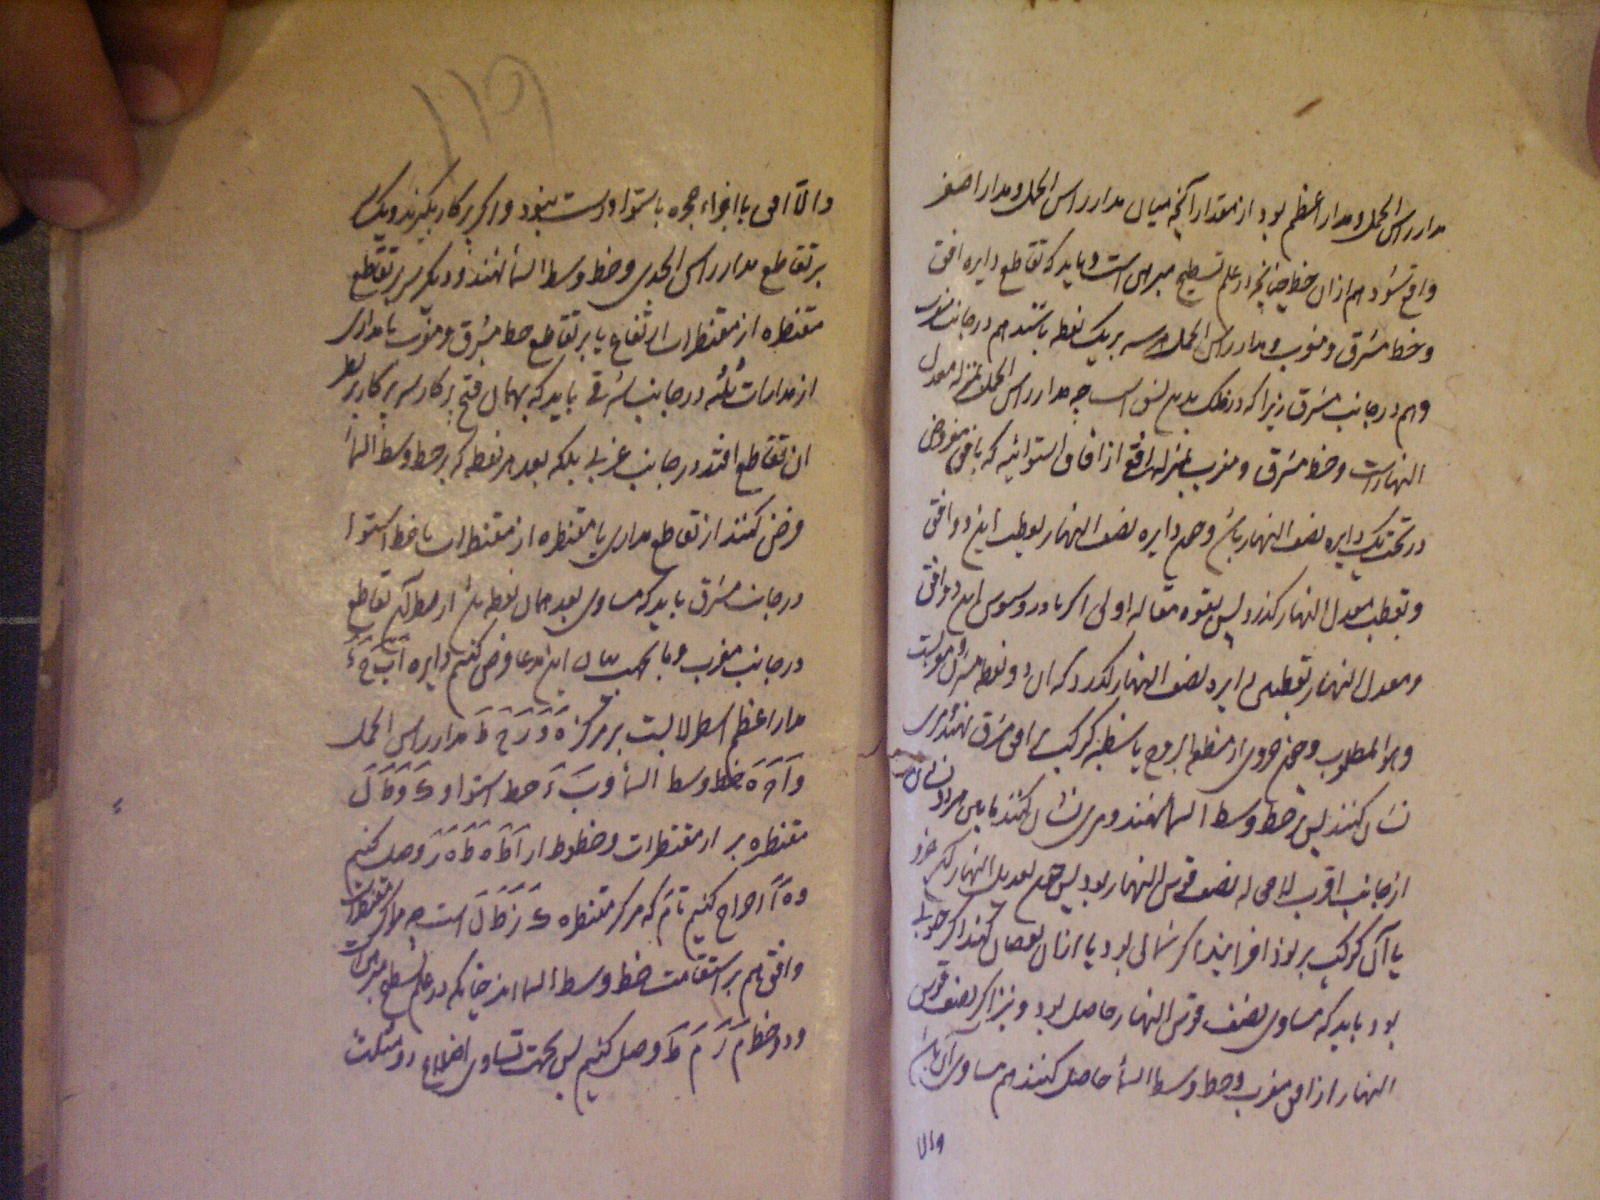 مدار راس الحمل و مدار اعظم بود از مقدار آنچه میان مدار راس الحمل و مدار اصغر
واقع شود هم ازان خط چنانچه در علم تسطیح مبرهن است و باید که تقاطع دایره افق
و خط مشرق و مغرب و مدار راس الحمل هر سه بر یک نقطه باشند هم در جانب مغرب
و هم در جانب مشرق زیرا که در فلک بدین نسق است چه مدار راس الحمل بمنزله معدل
النهارست و خط مشرق و مغرب بمنزله افقی از افاق استوائیه که با افق مفروض
در تحت یک دایره نصف النهار باشد و چون دایره نصف النهار بقطب این دو افق
و بقطب معدل النهار گذرد پس بقوه مقاله اولی اکر ثاودوسیوس این دو افق
و معدل النهار بقطبی دایره نصف النهار گذرد که آن دو نقطه مشرق و مغربست
و هو المطلوب و چون جزوی از منطقة البروج یا شظیه کوکبی بر افق مشرق نهند و مری
نشان کنند پس بر خط وسط السماء نهند و مری نشان کنند ما بین هر دو نشان
از جانب اقرب نصف قوس النهار بود پس چون تعدیل النهار آن جزو
یا آن کوکب بر نود افزایند اگر شمالی بود یا ازان نقصان کنند اگر جنوبی
بود باید که مساوی نصف قوس النهار حاصل بود و نیز اگر نصف قوس
النهار از افق مغرب و خط وسط السماء حاصل کنند هم مساوی آن باشد
والا
۱۱۹
والا افق یا اجزاء حجره یا استوا درست نبود و اگر پرکار بگیرند و یک سر
بر تقاطع مدار راس الجدی و خط وسط السماء نهند و دیگر سر بر تقاطع
مقنطره از مقنطرات ارتفاع یا بر تقاطع خط مشرق و مغرب با مداری
از مدارات ثلثه در جانب شرقی باید که بهمان فتح پرکار سر پرکار بر نظیر
آن تقاطع افتد در جانب غربی بلکه بعد هر نقطه که بر خط وسط السماء
فرض کنند از تقاطع مداری یا مقنطره از مقنطرات با خط استوا
در جانب مشرق باید که مساوی بعد همان نقطه باشد از نظیر آن تقاطع
در جانب مغرب و بجهت بیان این مدعا فرض کنیم دایره
مدار اعظم اسطرلابست بر مرکز ه و مدار راس الحمل
و خط وسط السماء و خط استوا و
مقنطره بر از مقنطرات و خطوط وصل کنیم
و اخراج کنیم تا م که مرکز مقنطره است چه مراکز مقنطرات
و افق هم بر استقامت خط وسط السماء اند چنانکه در علم تسطیح مبرهنست
و دو خط م ز م ط وصل کنیم پس بجهت تساوی اضلاع دو مثلث